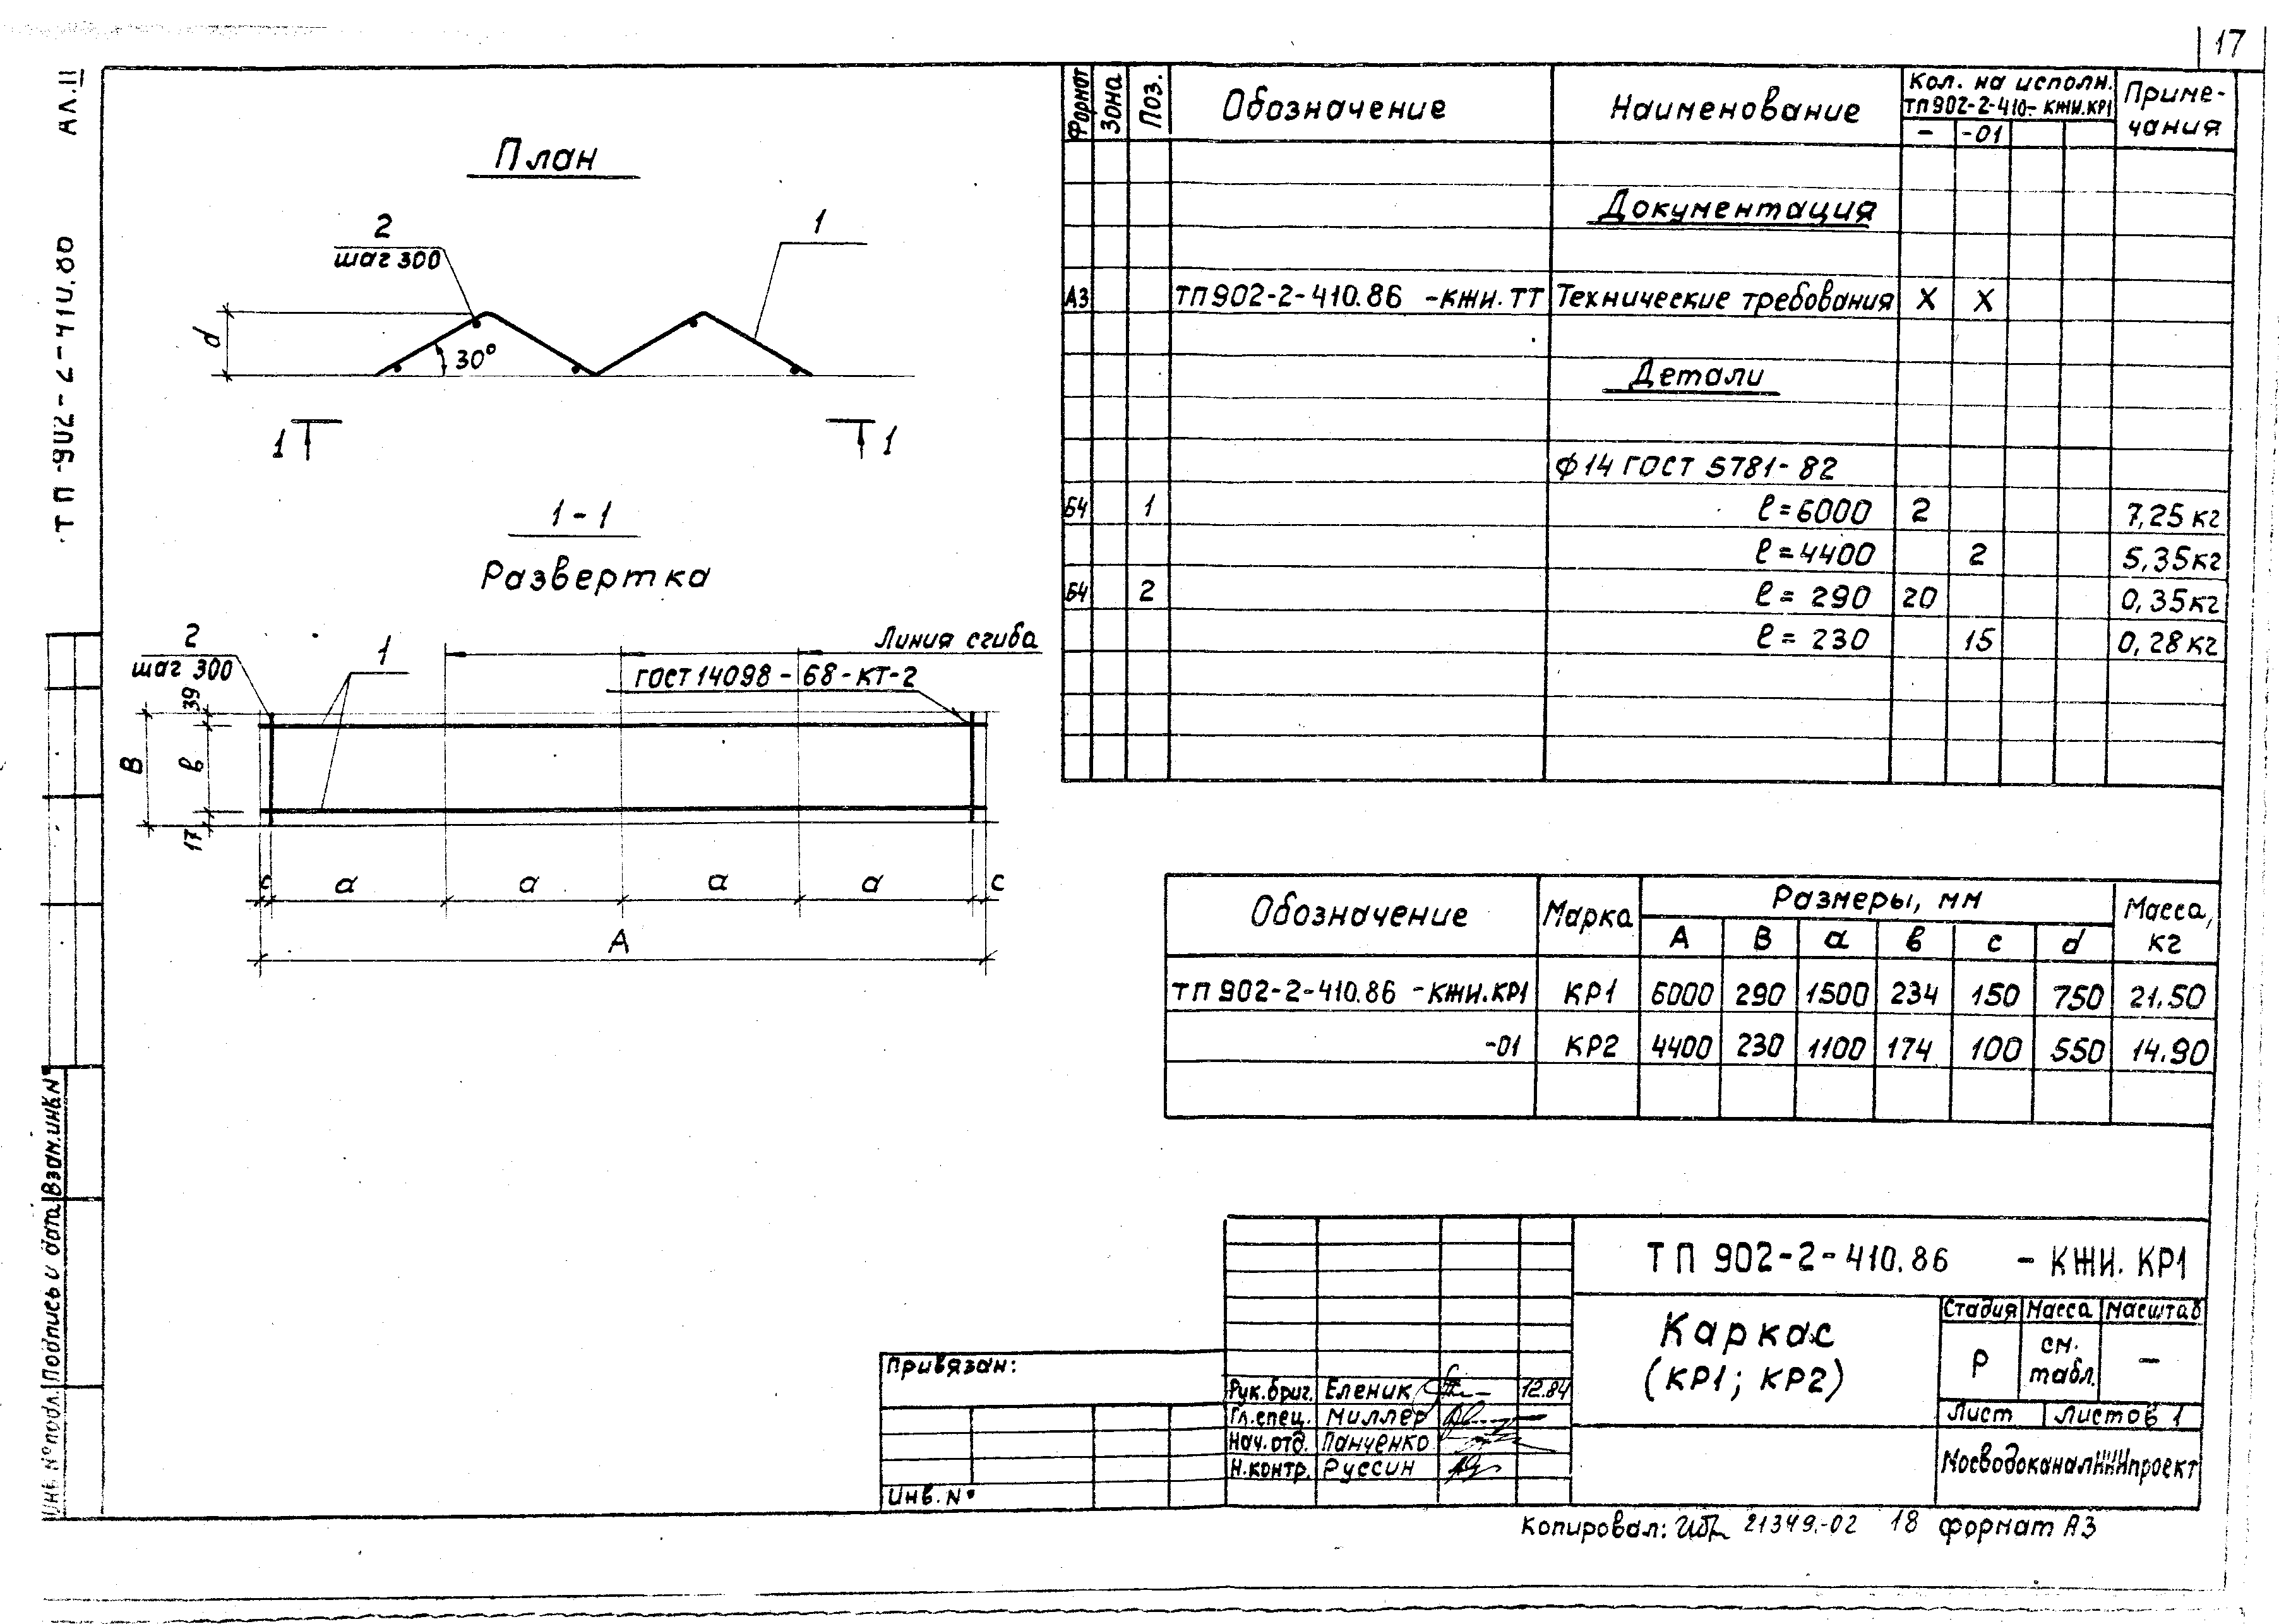 17
Ал.II
ТП-902-2-410.86
План
2
шаг 300
1
d
30°
1 1
1-1
Развертка
2
шаг 300
1
Линия сгиба
ГОСТ 14098-68-КТ-2
39
В
в
17
с а а а а с
А
Формат Зона Поз. Обозначение Наименование Кол. на исполн. ТП902-2-410-КЖИ.КР1 Примечания
- -01
Документация
А3 ТП902-2-410.86 -КЖИ.ТТ Технические требования Х Х
Детали
ф14 ГОСТ 5781-82
Б4 1 ℓ=6000 2 7,25кг
ℓ=4400 2 5,35кг
Б4 2 ℓ=290 20 0,35кг
ℓ=230 15 0,28кг
Обозначение Марка Размеры, мм Масса, кг
А В а в с d
ТП 902-2-410.86 -КЖИ.КР1 КР1 6000 290 1500 234 150 750 21.50
-01 КР2 4400 230 1100 174 100 550 14.90
ТП 902-2-410.86 -КЖИ.КР1
Каркас
(КР1; КР2)
Стадия Масса Масштаб
Р см. табл. -
Лист Листов 1
МосводоканалНИИпроект
Привязан:
Инв. №
Рук.бриг. Еленик 12.84
Гл.спец. Миллер
Нач.отд. Панченко
Н.контр. Руссин
Инв. № подл. Подпись и дата Взам.инв.№
Копировал: 21349-02 18 формат А3